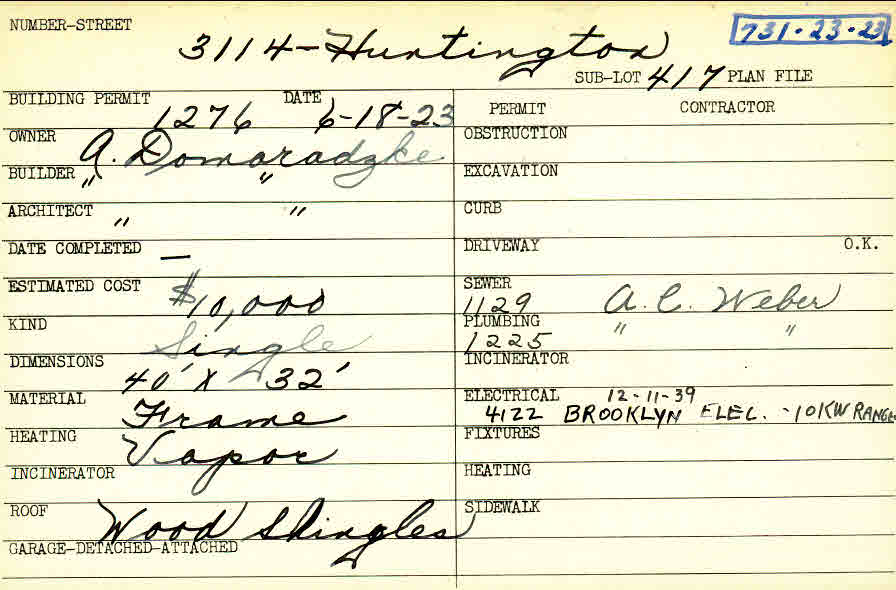 NUMBER-STREET
3114-Huntington
731-23-23
SUB-LOT 417 PLAN FILE
BUILDING PERMIT 1276 DATE 6-18-23
OWNER A. Domaradzke
BUILDER " "
ARCHITECT " "
DATE COMPLETED —
ESTIMATED COST $10,000
KIND Single
DIMENSIONS 40' X 32'
MATERIAL Frame
HEATING Vapor
INCINERATOR
ROOF Wood Shingles
GARAGE-DETACHED-ATTACHED
PERMIT CONTRACTOR
OBSTRUCTION
EXCAVATION
CURB
DRIVEWAY O.K.
SEWER
1129 A. C. Weber
PLUMBING " "
1225
INCINERATOR
ELECTRICAL 12-11-39
4122 BROOKLYN ELEC. -10KW RANGE
FIXTURES
HEATING
SIDEWALK